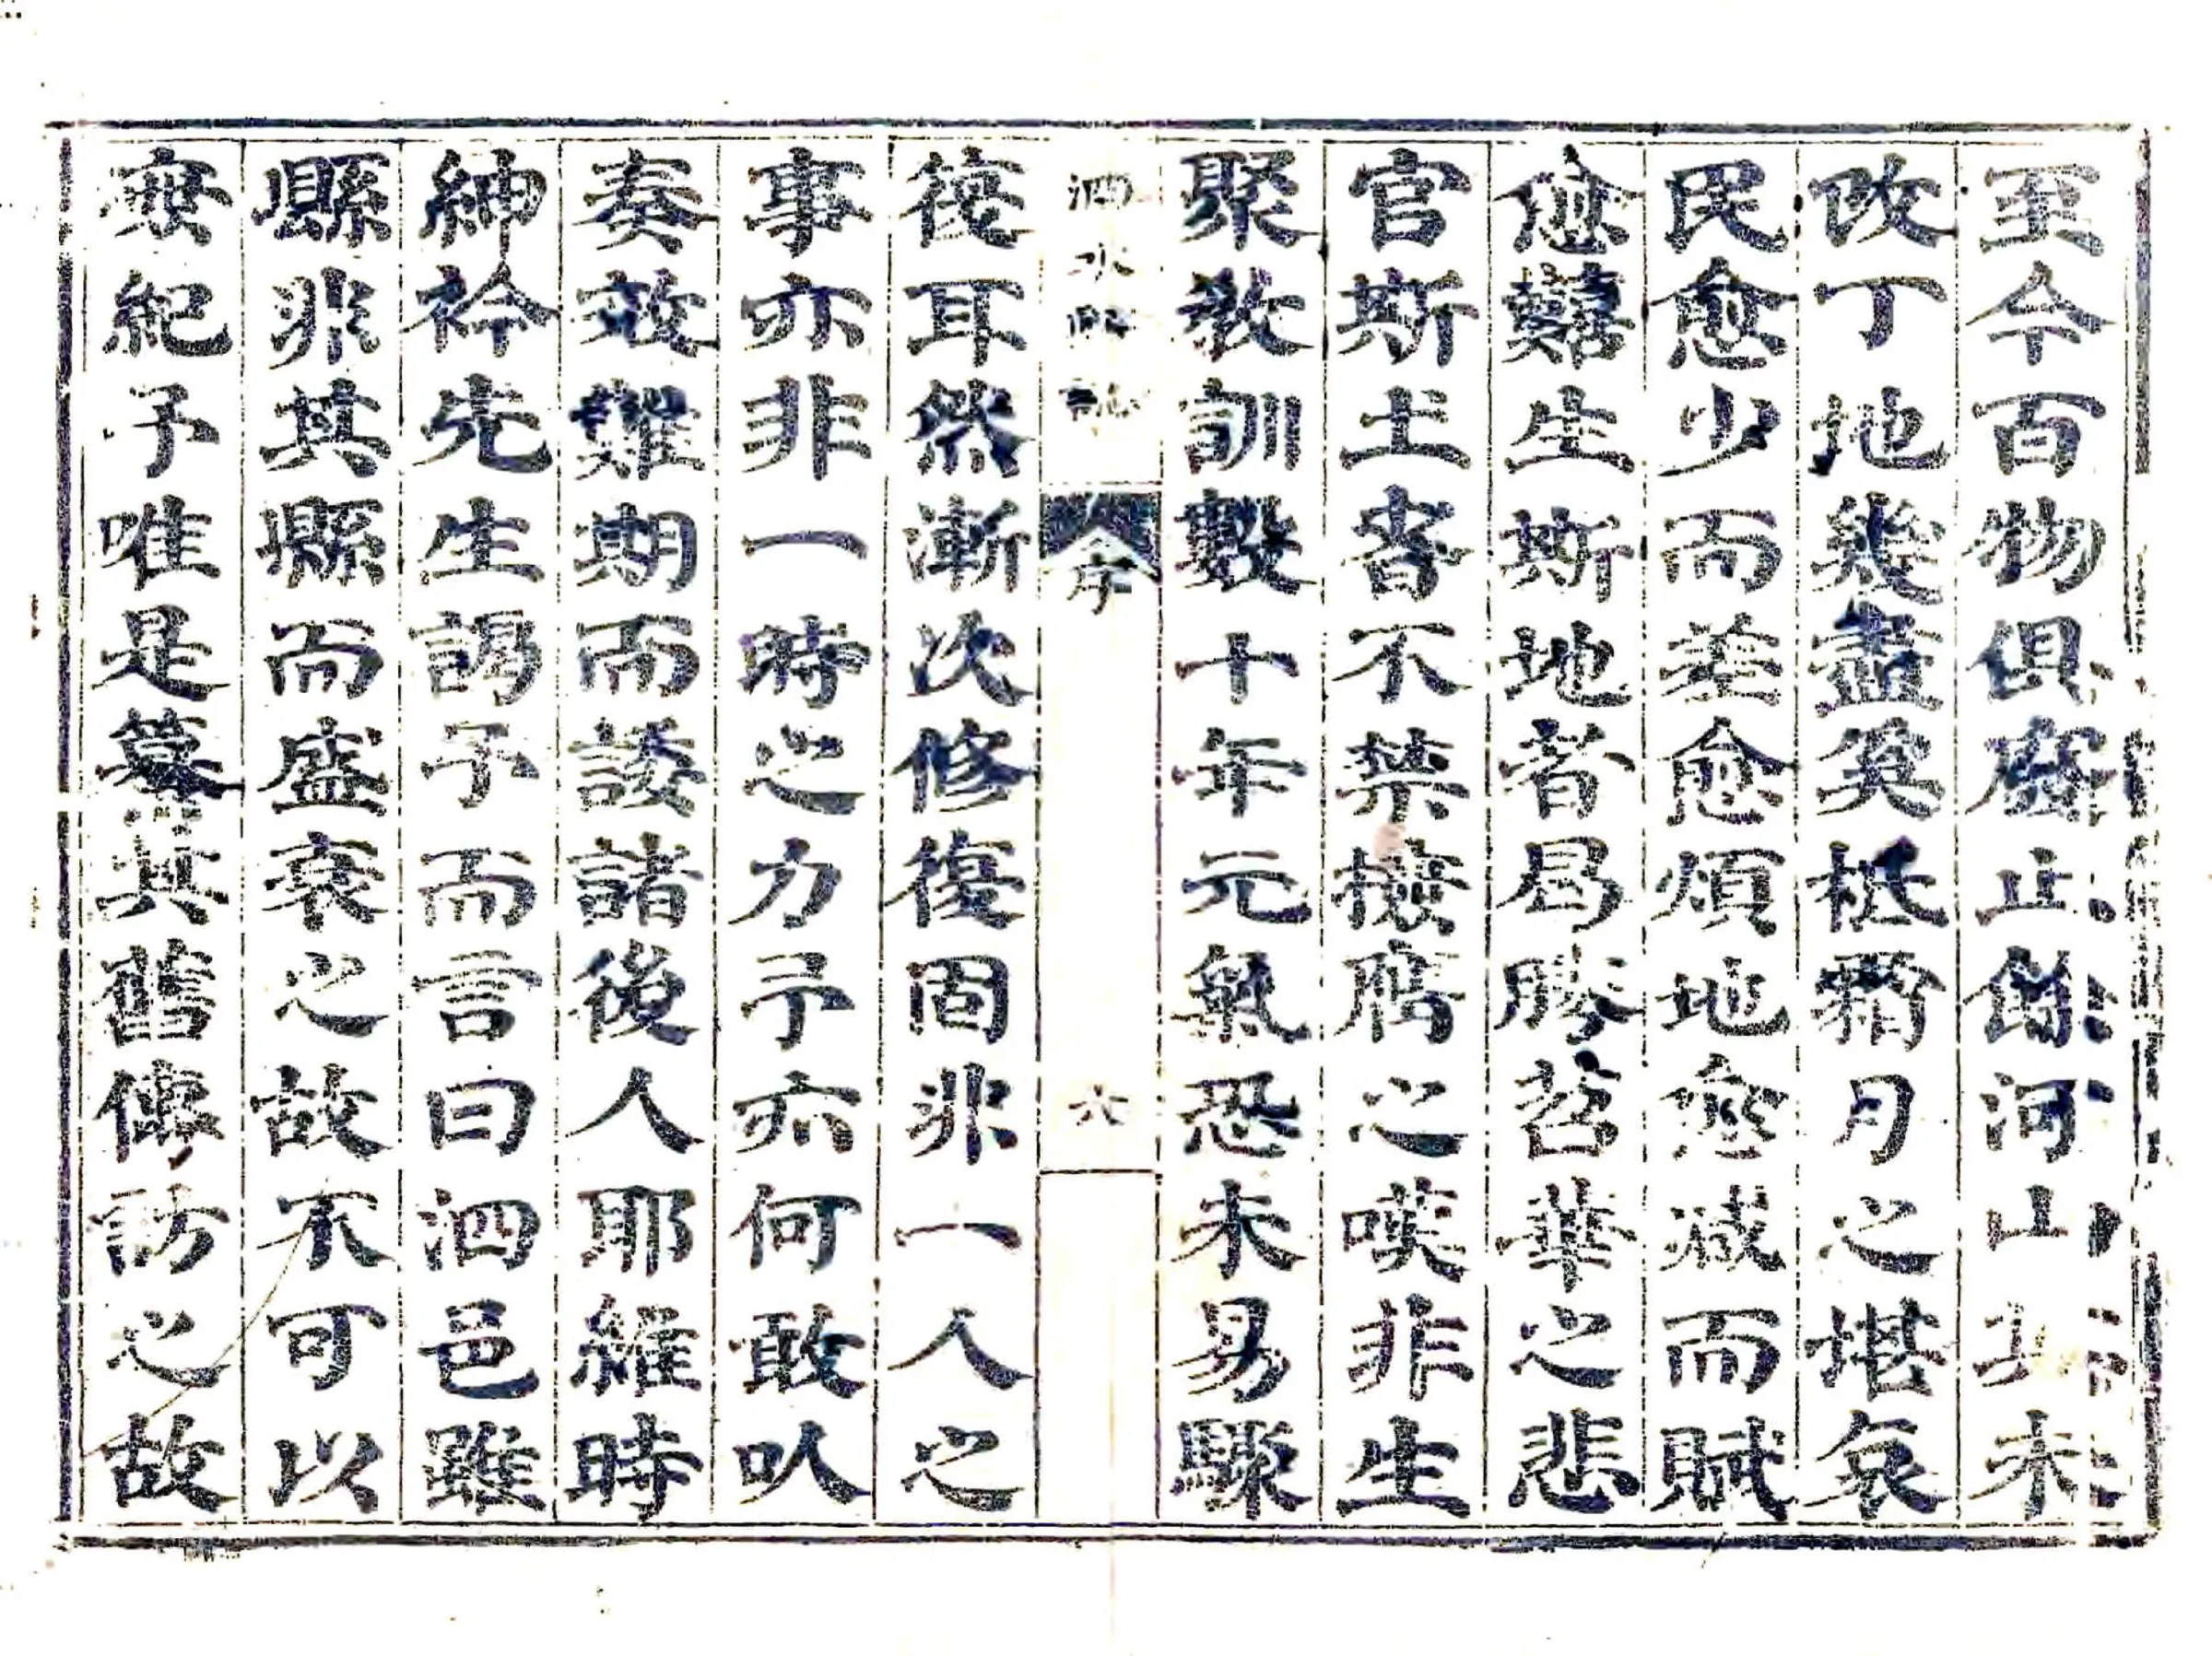 至今百物俱廢止餘河山未
改丁地幾盡奚柢霜月之堪哀
民愈少而差愈煩地愈減而賦
愈囏生斯地者曷勝苕華之悲
官斯土者不禁撫膺之嘆非生
聚教訓數十年元氣恐未易驟
泗水縣誌 序 六
復耳然漸次修復固非一人之
事亦非一時之力予亦何敢以
奏效難期而諉諸後人耶維時
紳衿先生謂予而言曰泗邑雖
縣非其縣而盛衰之故不可以
無紀予唯是其舊傳訪之故